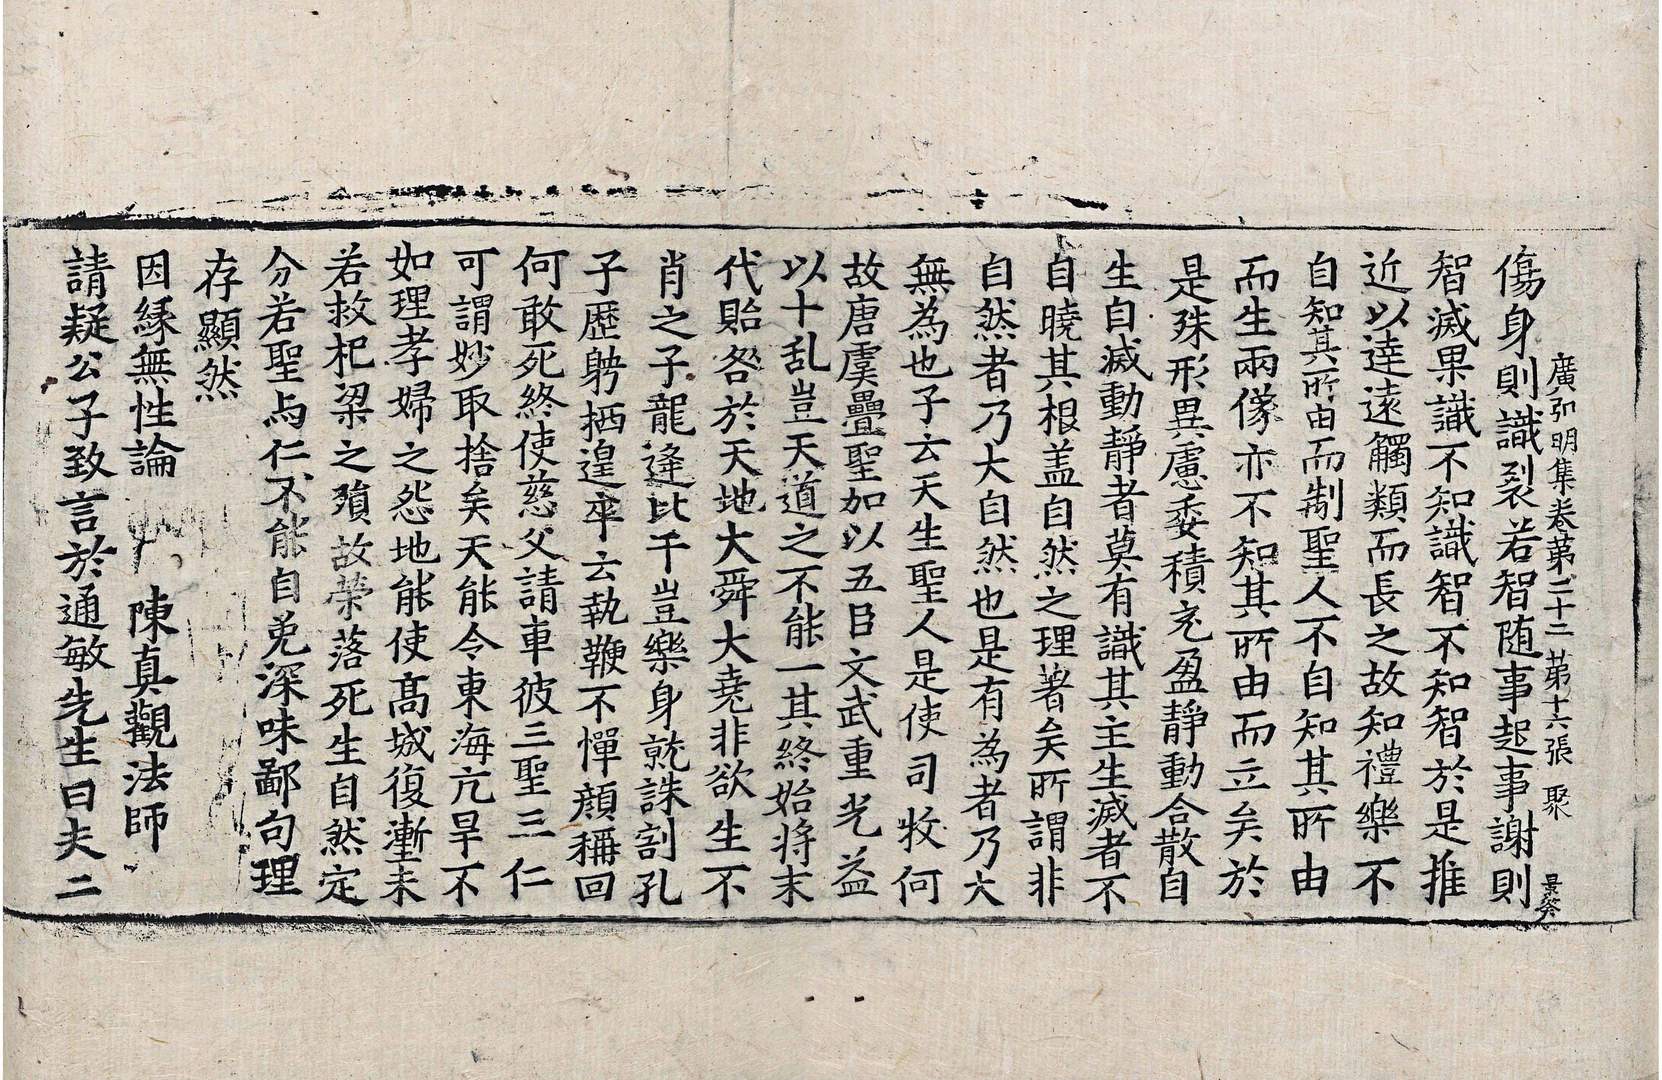 廣弘明集卷第二十二 第十六張 聚
傷身則識裂若智随事起事謝則
景答
智滅果識不知識智不知智於是推
近以達遠觸類而長之故知禮樂不
自知其所由而制聖人不自知其所由
而生兩儀亦不知其所由而立矣於
是殊形異慮委積充盈靜動合散自
生自滅動靜者莫有識其主生滅者不
自曉其根盖自然之理著矣所謂非
自然者乃大自然也是有為者乃大
無為也子云天生聖人是使司牧何
故唐虞疊聖加以五臣文武重光益
以十乱豈天道之不能一其終始将末
代貽咎於天地大舜大堯非欲生不
肖之子龍逄比干豈樂身就誅割孔
子歷騁栖遑卒云執鞭不憚顔稱回
何敢死終使慈父請車彼三聖三仁
可謂妙取捨矣天能令東海亢旱不
如理孝婦之怨地能使高城復壍未
若救杞梁之殞故榮落死生自然定
分若聖与仁不能自免深味鄙句理
存顯然
因縁無性論 陳真觀法師
請疑公子致言於通敏先生曰夫二